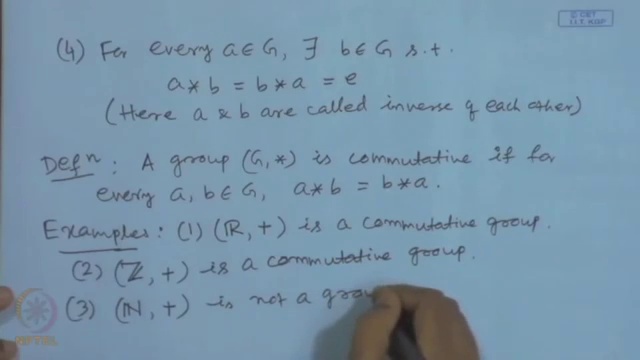 © CET
I.I.T. KGP
(4) For every a ∈ G, ∃ b ∈ G s.t.
a * b = b * a = e
(Here a & b are called inverse of each other)
Defⁿ : A group (G, *) is commutative if for
every a, b ∈ G, a * b = b * a.
Examples : (1) (ℝ, +) is a commutative group.
(2) (ℤ, +) is a commutative group.
(3) (ℕ, +) is not a grou
NPTEL